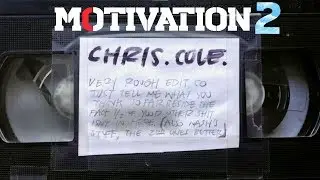 MOTIVATION 2
CHRIS. COLE.
VERY ROUGH EDIT SO
JUST TELL ME WHAT YOU
THINK SO FAR BESIDE THE
FAST 1/2 OF YOUR OTHER SHIT
ISNT IN HERE (ALSO
STUFF, THE 2ND ONES BETTER)